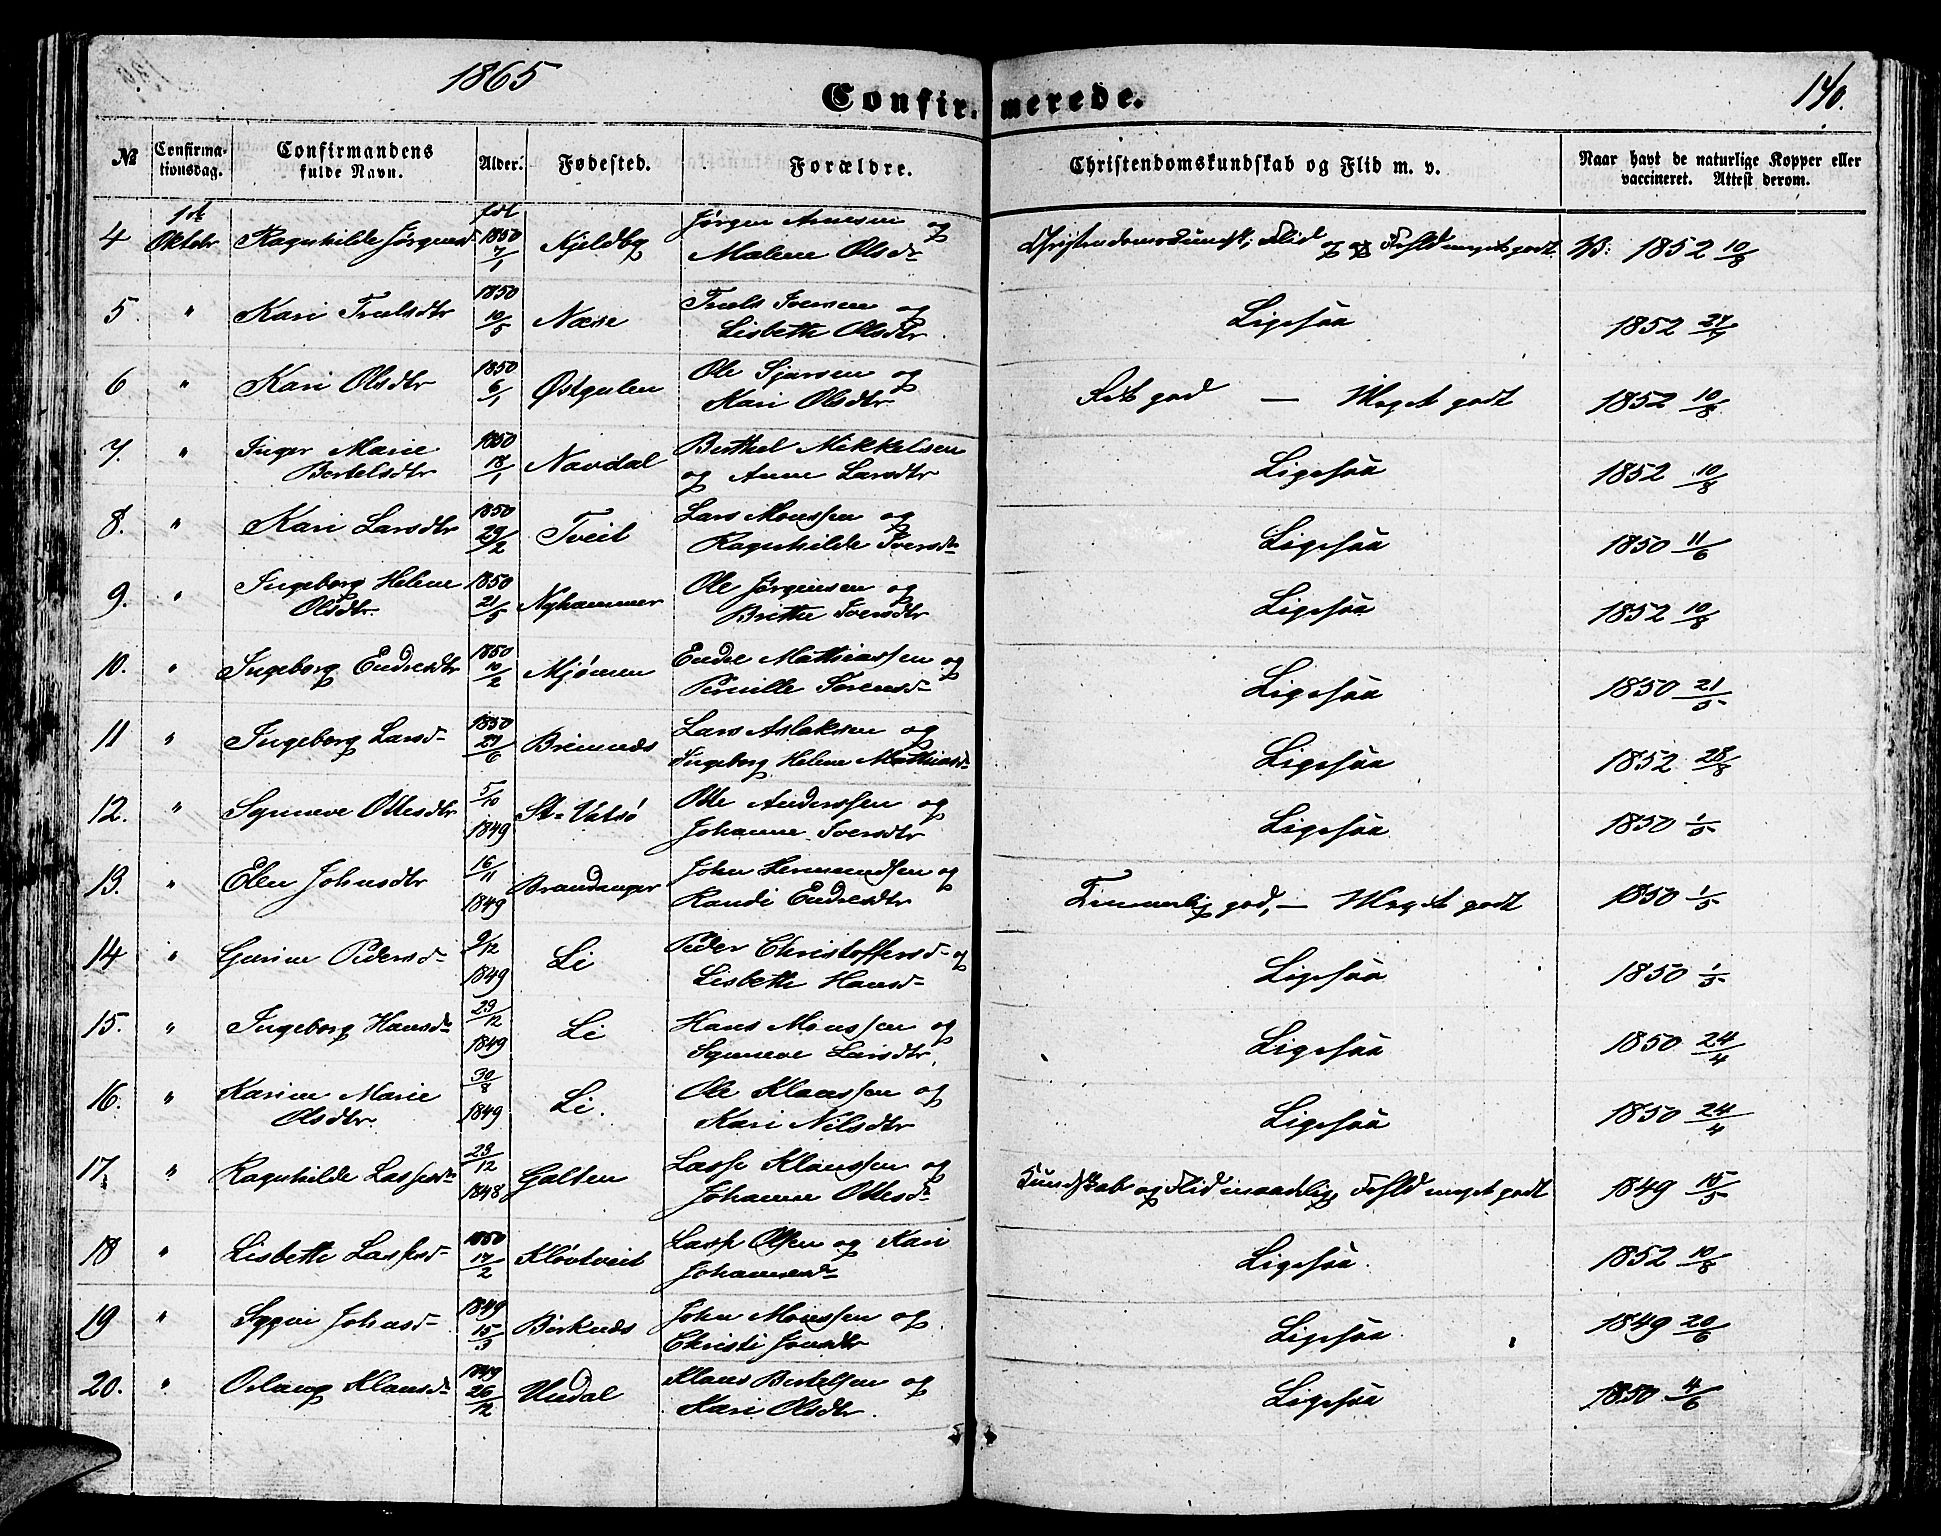 1865
Confirmerede.
140.
№ Confirmationsdag. Confirmandens fulde Navn. Alder. Fødested. Forældre. Christendomskundskab og Flid m. v. Naar havt de naturlige Kopper eller vaccineret. Attest derom.
4 1ste Oktobr Ragnhilde Jørgensd født 1850 7/1 Kjeldby Jørgen Arnesen og Malene Olsdr Christendomskundsk, Flid og Forhld meget godt. V: 1852 10/8
5. " Kari Trulsdtr 1850 10/5 Næse Truls Iversen og Lisbethe Olsdtr Ligesaa 1852 27/7
6 " Kari Olsdtr 1850 6/1 Østgulen Ole Sjursen og Kari Olsdtr Ret god — Meget godt 1852 10/8
7. " Inger Marie Bertelsdtr 1850 18/1 Navdal Berthel Mikkelsen og Anne Larsdtr Ligesaa 1852 10/8
8. " Kari Larsdtr 1850 29/2 Tveit Lars Monssen og Ragnhilde Iversdr Ligesaa 1850 11/6
9. " Ingeborg Helene Olsdtr 1850 21/5 Nyhammer Ole Jørgensen og Brithe Iversdtr Ligesaa 1852 10/8
10. " Ingeborg Endresdtr 1850 10/2 Mjømen Endre Mathiassen og Pernille Sørensd Ligesaa 1850 21/5
11 " Ingeborg Larsd 1850 29/6 Bremnæs Lars Aslaksen og Ingeborg Helene Mathiasd Ligesaa 1852 28/8
12. " Synneve Ottesdtr 5/10 1849 St. Vatsø Otte Anderssen og Johanne Iversdtr Ligesaa 1850 1/5
13. " Elen Johnsdtr 16/11 1849 Brandanger John Hermundssen og Randi Endresdtr Temmelig god, — Meget godt 1850 1/5
14 " Gurine Pedersd 9/12 1849 Li Peder Christoffersd og Lisbethe Hansd Ligesaa 1850 1/5
15. " Ingeborg Hansdr 29/12 1849 Li Hans Monssen og Synneve Larsdtr Ligesaa 1850 24/4
16. " Karine Marie Olsdtr 30/8 1849 Li. Ole Klaussen og Kari Nilsdtr Ligesaa 1850 24/4
17. " Ragnhilde Lassesdr 23/12 1848 Galten Lasse Klaussen og Johanne Ottesdr Kundskab og Flid maadelig Forhld meget godt 1849 15/5
18 " Lisbethe Lassesd 1850 17/2 Kløvtveit Lasse Olsen og Kari Johannesdr Ligesaa. 1852 10/8
19 " Sygni Johnsd 1849 15/3 Birknæs John Monssen og Christi Jonsdtr Ligesaa 1849 20/6
20. " Oslaug Klausdr 1849 26/12 Undal Klaus Bertelsen og Kari Olsdtr. Ligesaa 1850 4/6